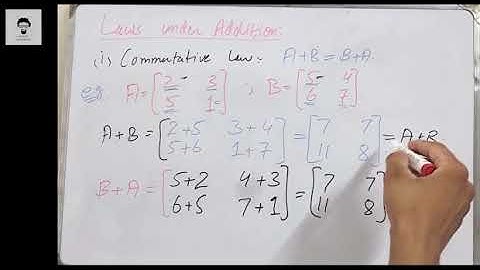 Laws under Addition:
(i) Commutative Law: A+B = B+A.
eg A = [2 3; 5 1] , B = [5 4; 6 7]
A+B = [2+5 3+4; 5+6 1+7] = [7 7; 11 8] = A+B
B+A = [5+2 4+3; 6+5 7+1] = [7 7; 11 8]